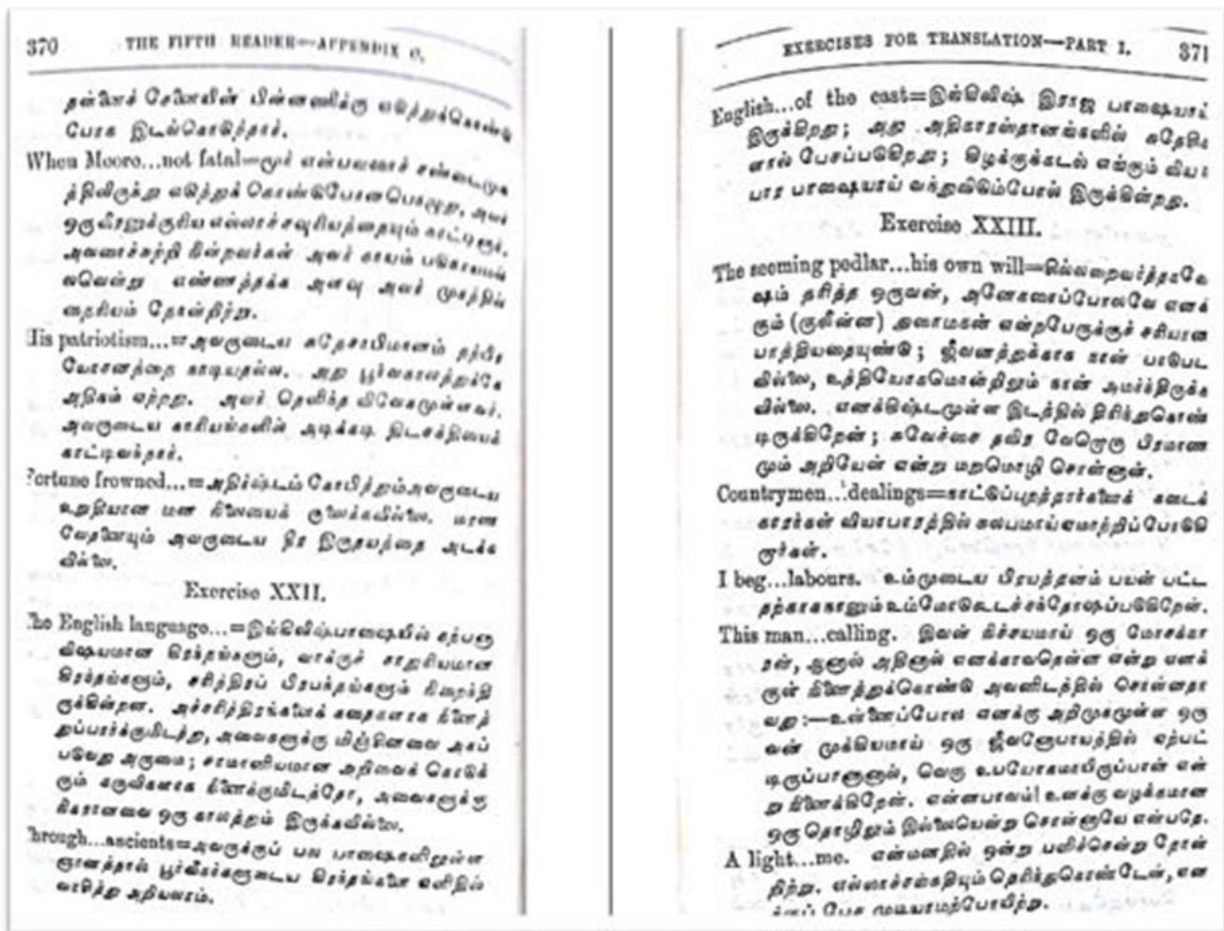 370 THE FIFTH READER—APPENDIX C.
தன்னைச் சேனையின் பின்னணிக்கு எடுத்துக்கொண்டு
போக இடங்கொடுத்தார்.
When Moore...not fatal=மூர் என்பவரைச் சண்டைமுக
த்திலிருந்து எடுத்துக் கொண்டுபோனபொழுது, அவர்
ஒருவீரனுக்குரிய எல்லாச்சவுரியத்தையும் காட்டினார்.
அவரைச்சுற்றி நின்றவர்கள் அவர் காயம் படுகாயமல்
லவென்று எண்ணத்தக்க அளவு அவர் முகத்தில்
தைரியம் தோன்றிற்று.
His patriotism...=அவருடைய சுதேசாபிமானம் தற்பிர
யோசனத்தை நாடியதல்ல. அது பூர்வகாலத்துக்கே
அதிகம் ஏற்றது. அவர் தெளிந்த விவேகமுள்ளவர்.
அவருடைய காரியங்களில் அடிக்கடி திடசித்தியைக்
காட்டிவந்தார்.
Fortune frowned...=அதிர்ஷ்டம் கோபித்தும்அவருடைய
உறுதியான மன நிலையைக் குலைக்கவில்லை. மரண
வேதனையும் அவருடைய தீர இருதயத்தை அடக்க
வில்லை.
Exercise XXII.
The English language...=இங்கிலிஷ்பாஷையில் கற்பனா
விஷயமான கிரந்தங்களும், வாக்குச் சாதுரியமான
கிரந்தங்களும், சரித்திரப் பிரபந்தங்களும் நிறைந்தி
ருக்கின்றன. அச்சரித்திரங்களைக் கதைகளாக நினைத்
துப்பார்க்குமிடத்து, அவைகளுக்கு மிஞ்சினவை அகப்
படுவது அருமை; சாமானியமான அறிவைக் கொடுக்
கும் கருவிகளாக நினைக்குமிடத்தோ, அவைகளுக்கு
நிகரானவை ஒரு காலத்தும் இருக்கவில்லை.
Through...ancients=அவருக்குப் பல பாஷைகளிலுள்ள
ஞானத்தால் பூர்வீகர்களுடைய கிரந்தங்களை எளிதில்
வாசித்து அறியலாம்.
EXERCISES FOR TRANSLATION—PART I. 371
English...of the east=இங்கிலிஷ் இராஜ பாஷையாய்
இருக்கிறது; அது அதிகாரஸ்தானங்களில்
னால் பேசப்படுகிறது; கிழக்குக்கடல் எங்கும் வியா
பார பாஷையாய் வந்துவிடும்போல் இருக்கின்றது.
Exercise XXIII.
The seeming pedlar...his own will=சில்லறைவர்த்தகவே
ஷம் தரித்த ஒருவன், அனேகரைப்போலவே எனக்
கும் (குலீன்ன) கனமாகன் என்றபேருக்குச் சரியான
பாத்தியதையுண்டு; ஜீவனத்துக்காக நான் பாடுபட
வில்லை, உத்தியோகமொன்றிலும் நான் அமர்ந்திருக்க
வில்லை. எனக்கிஷ்டமுள்ள இடத்தில் திரிந்துகொண்
டிருக்கிறேன்; சுவேச்சை தவிர வேறொரு பிரமாண
மும் அறியேன் என்று மறுமொழி சொன்னான்.
Countrymen...dealings=நாட்டுப்புறத்தார்களைக் கடைக்
காரர்கள் வியாபாரத்தில் சுலபமாய்ஏமாற்றிப்போடுகி
றார்கள்.
I beg...labours. உம்முடைய பிரயத்தனம் பயன் பட்ட
தற்காகநானும்உம்மோடுகூடச்சந்தோஷப்படுகிறேன்.
This man...calling. இவன் நிச்சயமாய் ஒரு மோசக்கா
ரன், ஆனால் அதினால் எனக்காவதென்ன என்று எனக்
குள் நினைத்துக்கொண்டு அவனிடத்தில் சொன்னதா
வது:—உன்னைப்போல எனக்கு அறிமுகமுள்ள ஒரு
வன் முக்கியமாய் ஒரு ஜீவனோபாயத்தில் ஏற்பட்
டிருப்பானானால், வெகு உபயோகமாயிருப்பான் என்
று நினைக்கிறேன். என்னபாவம்! உனக்கு வழக்கமான
ஒரு தொழிலும் இல்லையென்று சொன்னாயே என்பதே.
A light...me. என்மனதில் ஒன்று பளிச்சென்று தோன்
றிற்று. எல்லாச்சங்கதியும் தெரிந்துகொண்டேன், என
க்குப் பேச முடியாமற்போயிற்று.